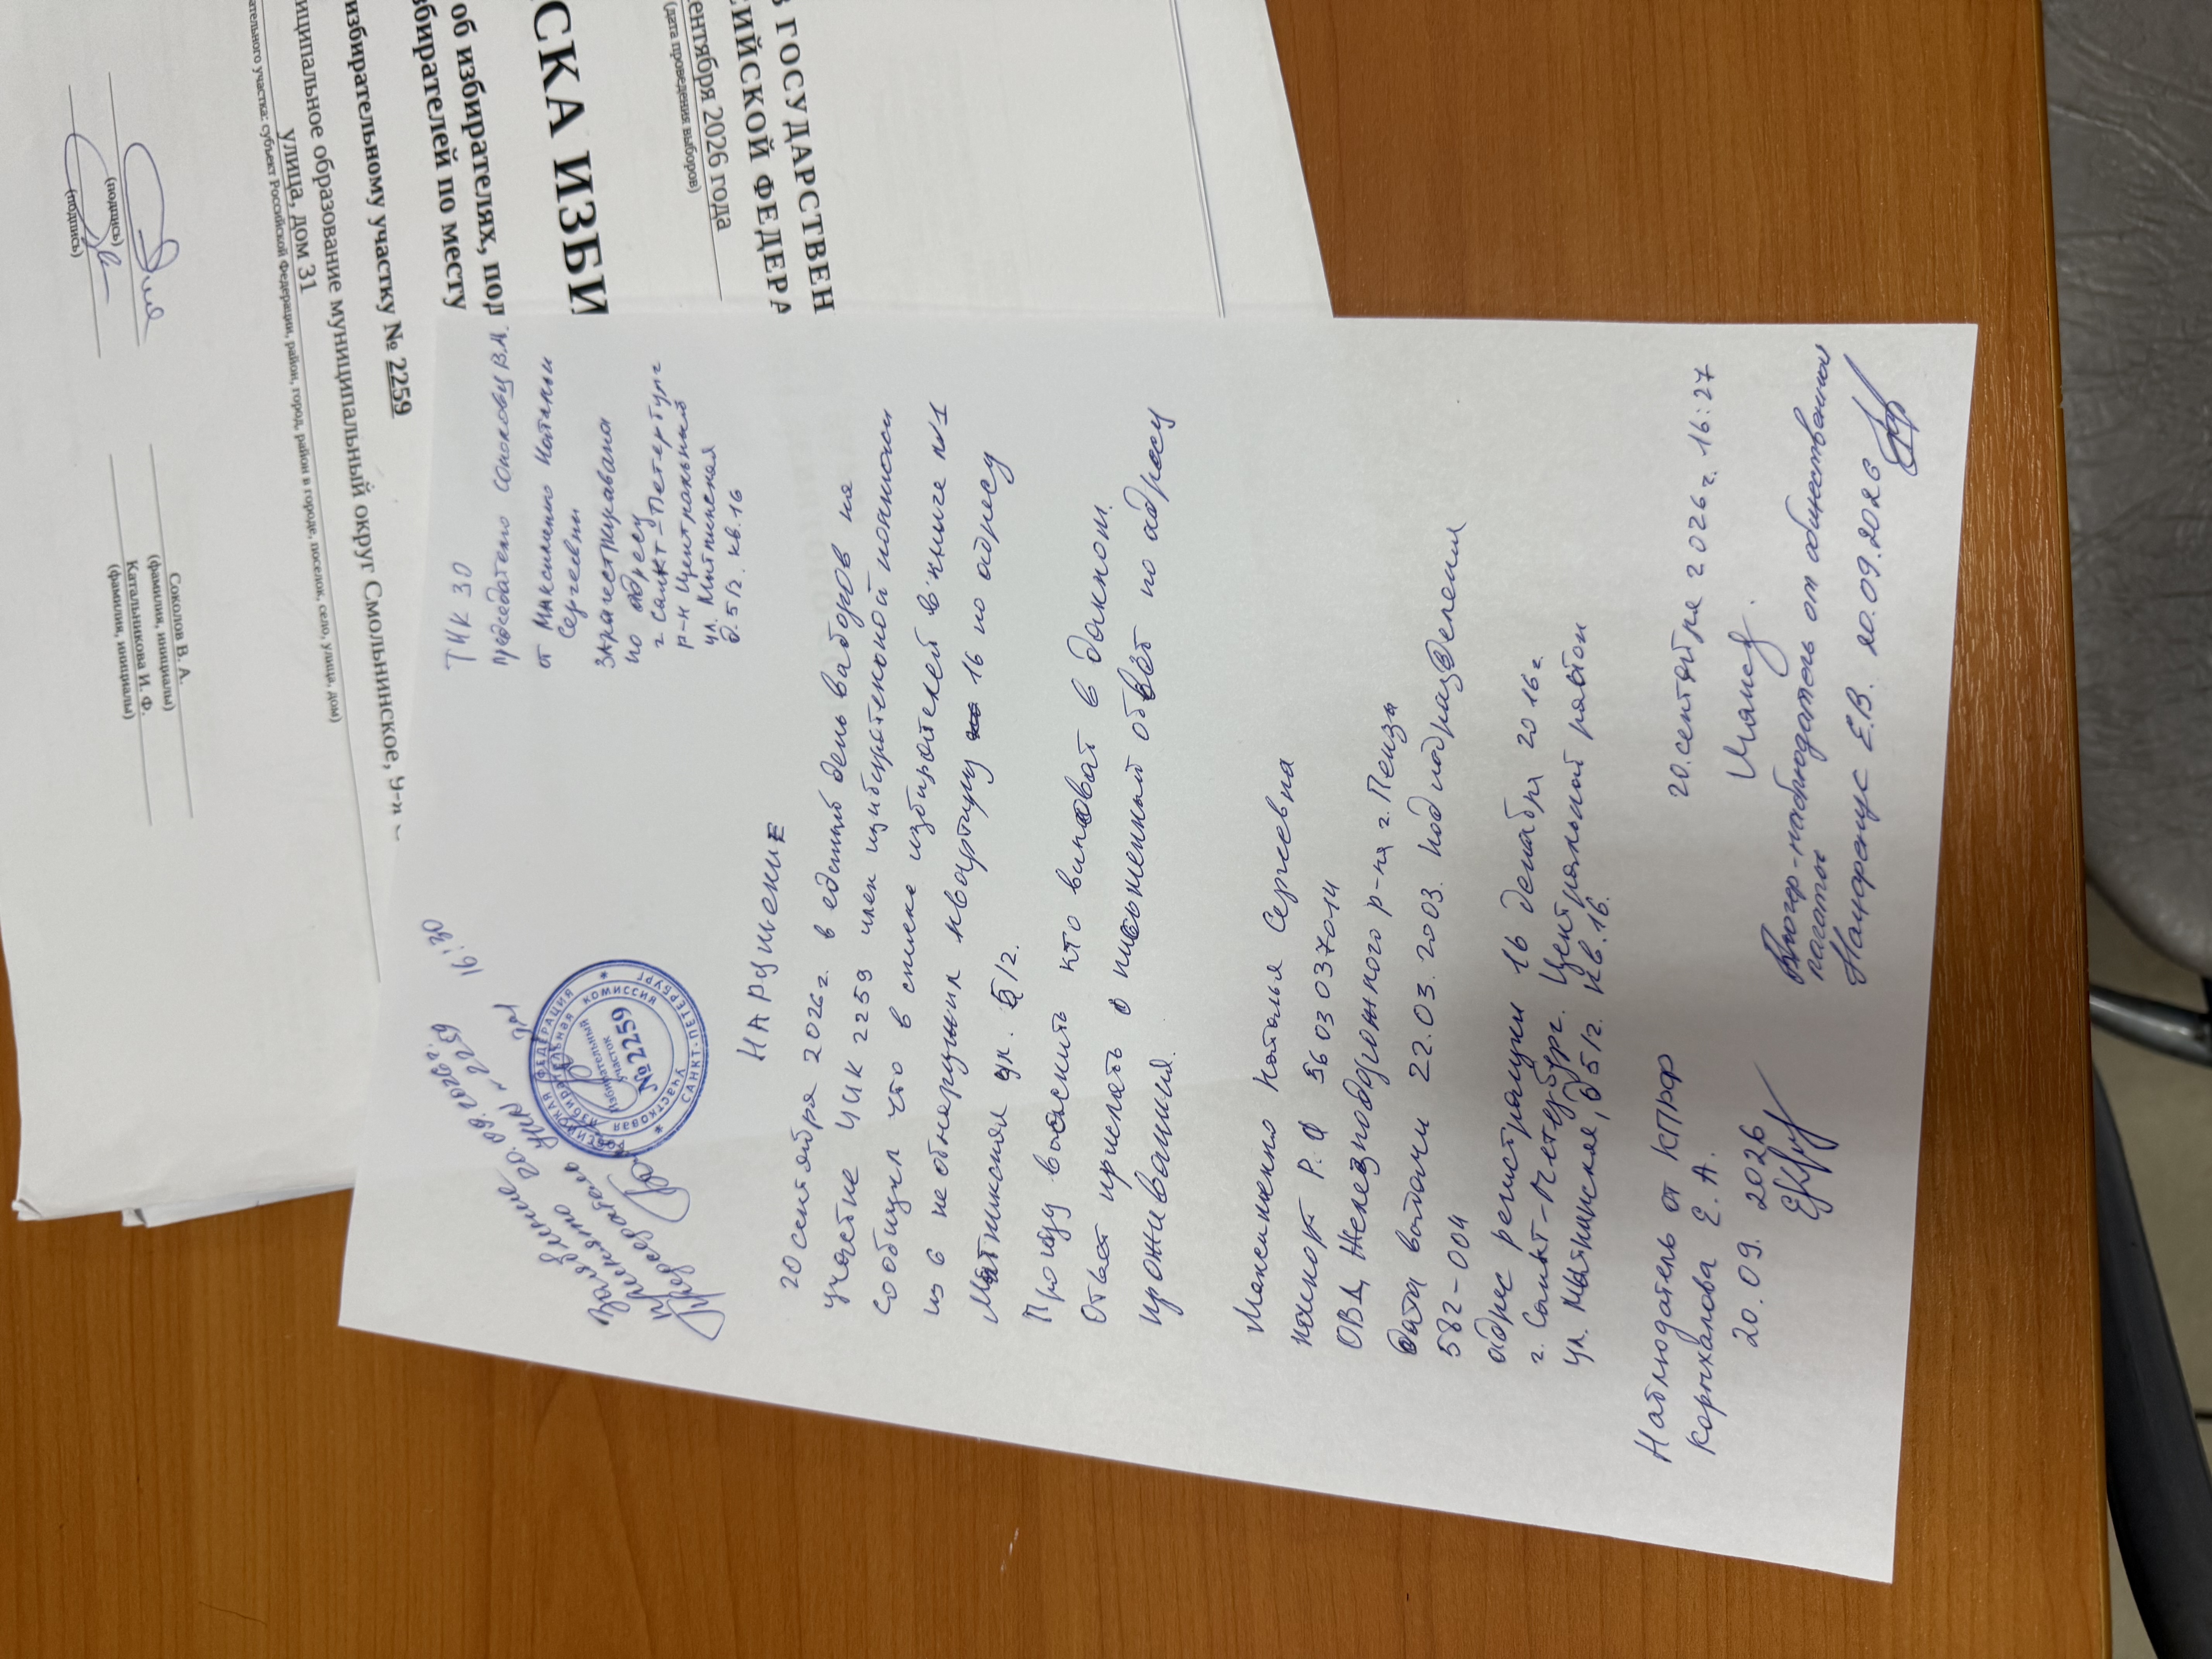 ТИК 30
председателю Соколову В.А.
от Максименко Натальи
Сергеевны
зарегистрирована
по адресу
г. Санкт-Петербург
р-н Центральный
ул. Мытнинская
д. 5/2. кв. 16
Заявление 20.09.2026г. 16:30
принято УИК № 2259
Председатель
РОССИЙСКАЯ ФЕДЕРАЦИЯ
УЧАСТКОВАЯ ИЗБИРАТЕЛЬНАЯ КОМИССИЯ
САНКТ-ПЕТЕРБУРГ
Избирательный
участок
№2259
НАРУШЕНИЕ
20 сентября 2026г. в единый день выборов на
участке УИК 2259 член избирательной комиссии
сообщил что в списке избирателей в книге №1
из 6 не обнаружил квартиру 16 по адресу
Мытнинская ул. 5/2.
Прошу выяснить кто виноват в данном.
Ответ прислать в письменный ответ по адресу
проживания.
Максименко Наталья Сергеевна
паспорт Р.Ф 5603 037014
ОВД Железнодорожного р-на г. Пенза
дата выдачи 22.03.2003. код подразделения
582-004
адрес регистрации 16 декабря 2016г.
г. Санкт-Петербург. Центральный район
ул. Мытнинская, д 5/2. кв. 16.
20.сентября 2026г. 16:27
Наблюдатель от КПРФ
Корыхалова Е. А.
20. 09. 2026
наблюдатель от общественной
палаты
Е.В. 20.09.2026
В ГОСУДАРСТВЕН
СИЙСКОЙ ФЕДЕРА
ентября 2026 года
(дата проведения выборов)
СКА ИЗБИ
об избирателях, под
збирателей по месту
избирательному участку № 2259
ниципальное образование муниципальный округ Смольнинское, у
улица, дом 31
ательного участка: субъект Российской Федерации, район, город, район в городе, поселок, село, улица, дом)
(подпись)
Соколов В. А.
(фамилия, инициалы)
(подпись)
Катальникова И. Ф.
(фамилия, инициалы)